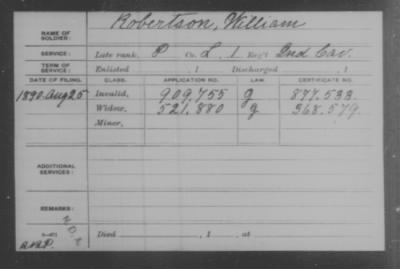 Robertson, William
NAME OF SOLDIER:
SERVICE: Late rank, P Co. L, 1 Reg't Ind Cav.
TERM OF SERVICE: Enlisted , 1 Discharged , 1
DATE OF FILING. CLASS. APPLICATION NO. LAW. CERTIFICATE NO.
1890 Aug 25 Invalid, 909,755 g 877.533
Widow, 521,880 g 368.579
Minor,
ADDITIONAL SERVICES:
REMARKS:
Died , 1 , at